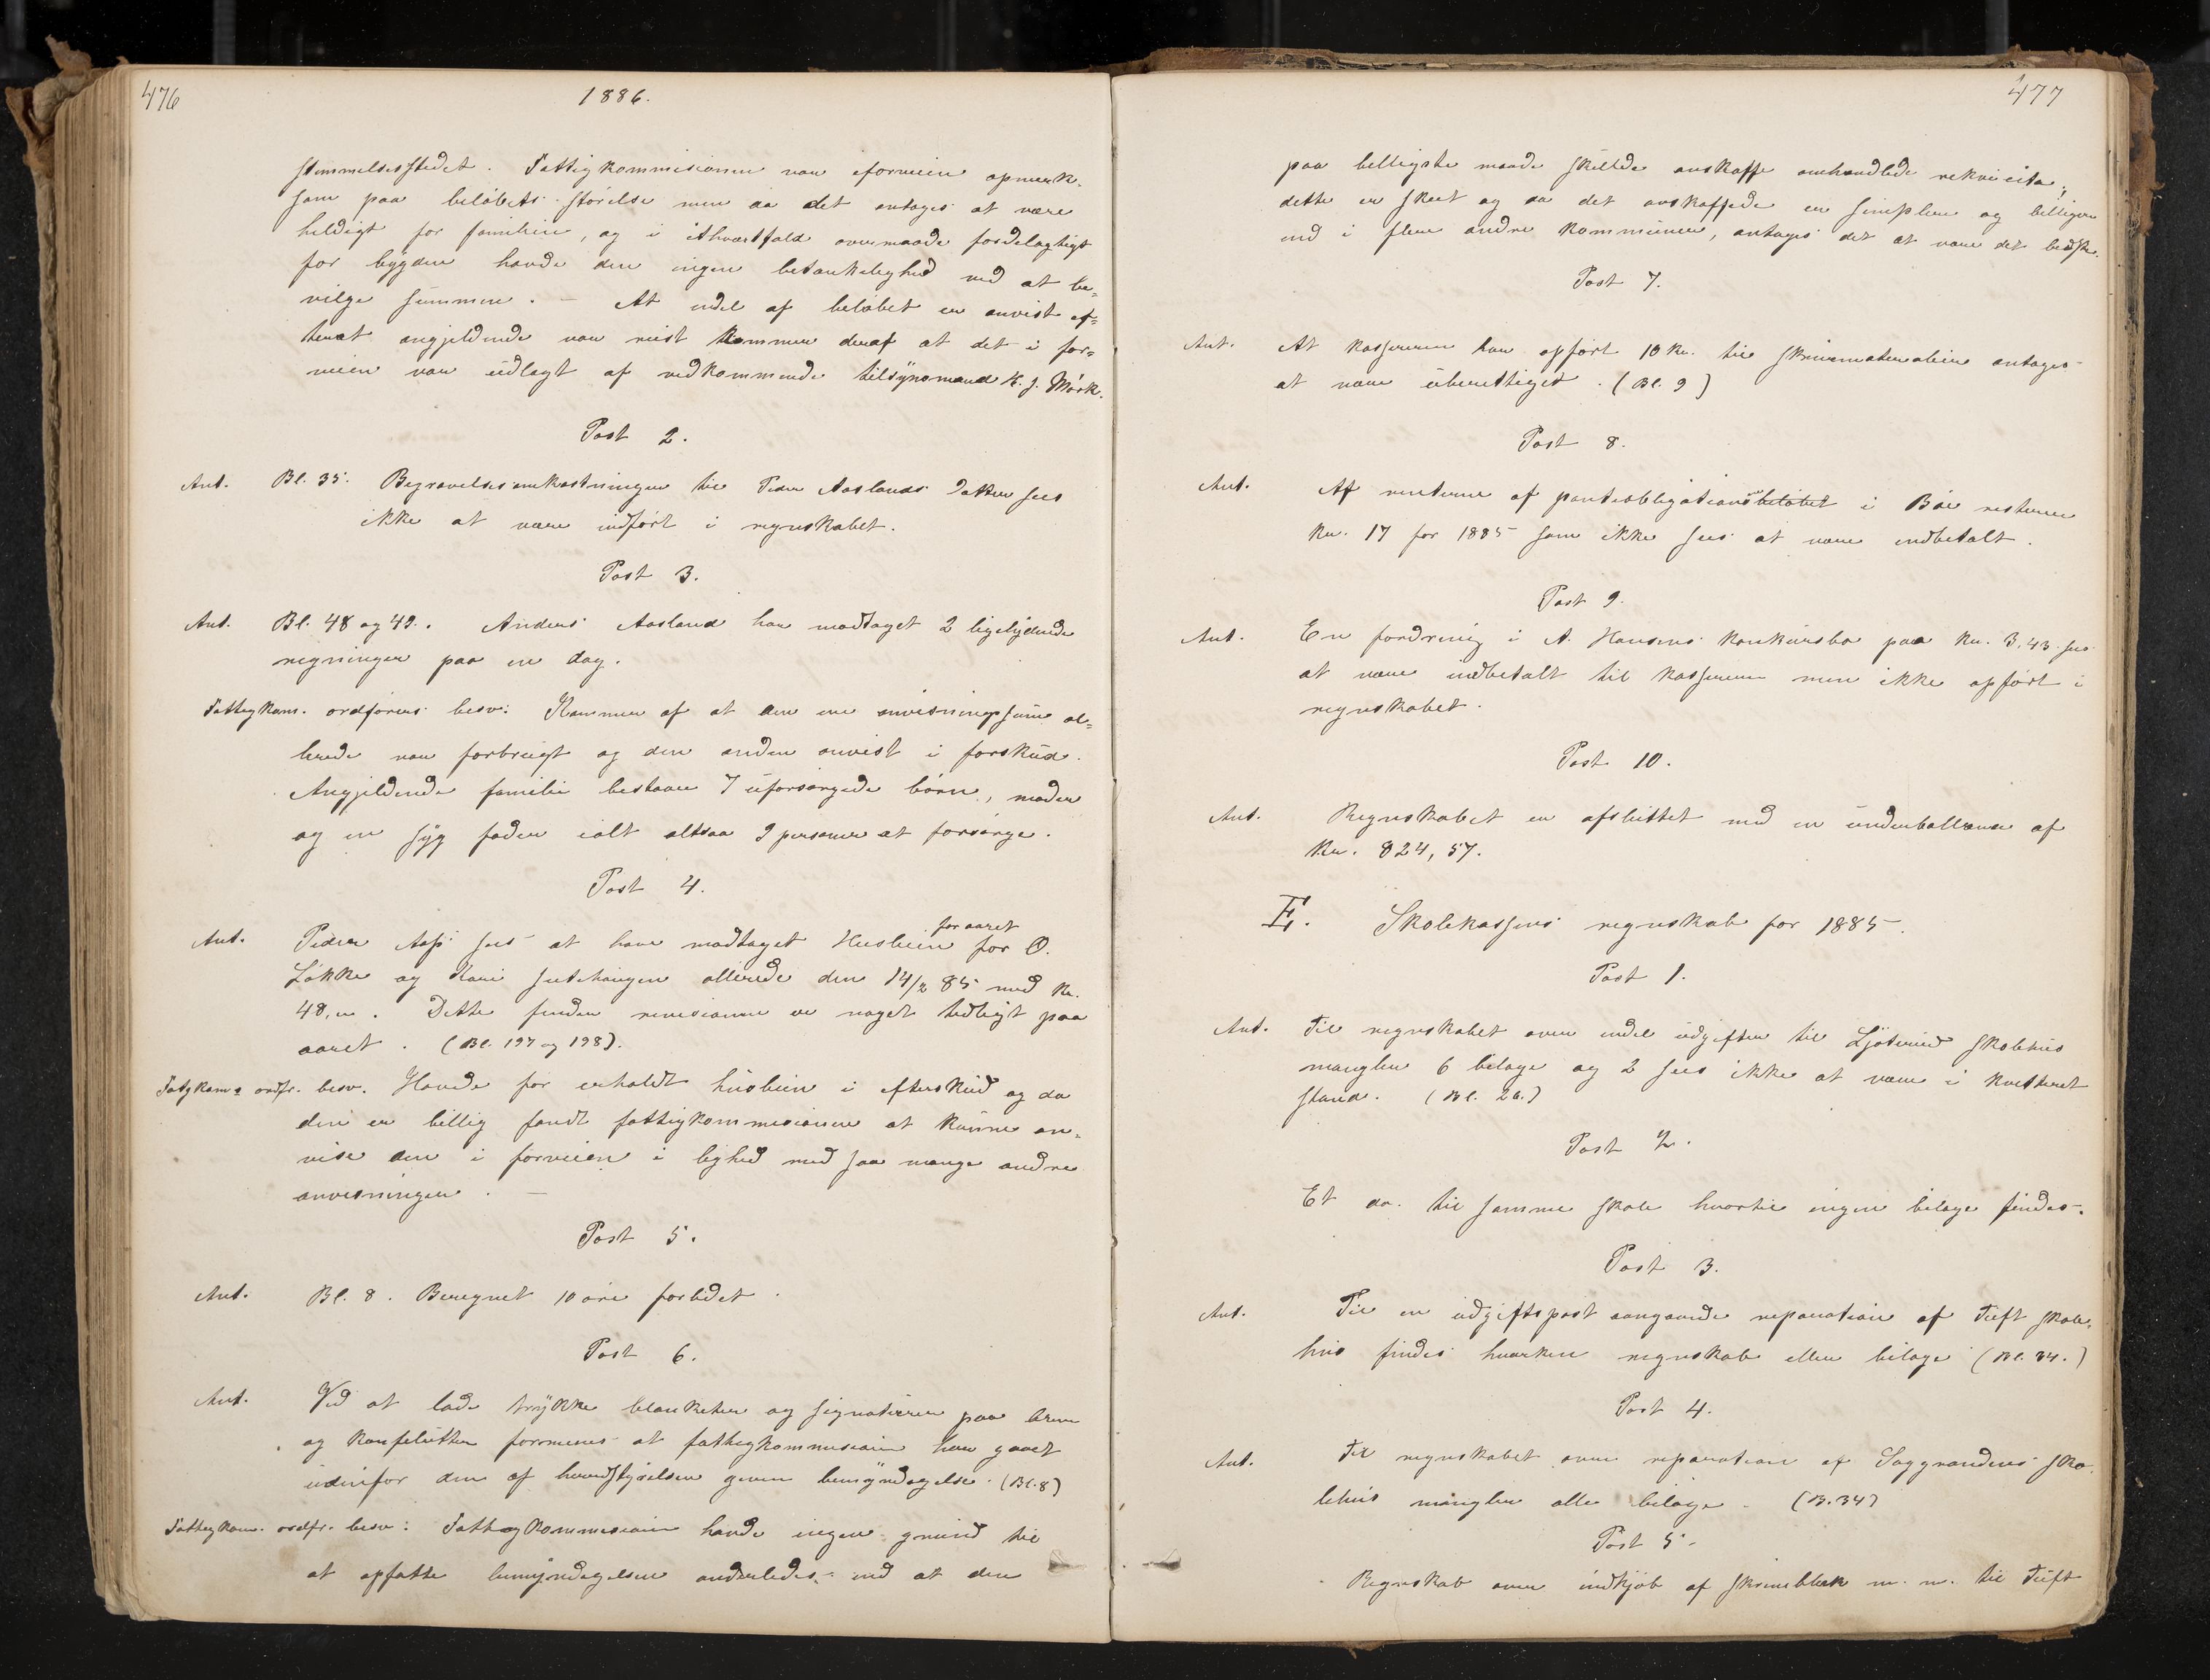 476
1886.
stemmelsesstedet. Fattigkommisionen var iforveien opmærk-
som paa beløbets størelse men da det antages at være
heldigt for familien, og i ethvertfald overmaade fordelagtigt
for bygden havde den ingen betænkelighed ved at be-
vilge summen. – At endel af beløbet er anvist ef-
terat angjeldende var reist kommer deraf at det i for-
veien var udlagt af vedkommende tilsynsmand K. J. Mørk.
Post 2.
Ant. Bl. 35. Begravelsesomkostninger til Peder Aaslands datter sees
ikke at være indført i regnskabet.
Post 3.
Ant. Bl. 48 og 49. Anders Aasland har modtaget 2 ligelydende
regninger paa en dag.
Fattigkom. ordførers besv: Kommer af at den ene anvisningssum al-
lerede var forbrugt og den anden anvist i forskud.
Angjeldende familie bestaar 7 uforsørgede børn, moder
og en syg fader ialt altsaa 9 personer at forsørge.
Post 4.
for aaret
Ant. Peder Asp sees at have modtaget Husleien for O.
Løkke og Kari allerede den 14/2 85 med Kr.
48,00. Dette finder revisionen er noget tidligt paa
aaret. (Bl. 197 og 198).
Fatgkoms ordfr. besv. Havde før erholdt husleien i efterskud og da
den er billig fandt fattigkommisionen at kunne an-
vise den i forveien i lighed med saa mange andre
anvisninger. –
Post 5.
Ant. Bl. 8. Beregnet 10 øre forlidet.
Post 6.
Ant. Ved at lade trykke blanketer og signaturer paa breve
og konvolutter formenes at fattigkommisionen har gaaet
udenfor den af herredstyrelsen given bemyndigelse. (Bl. 8)
Fattigkom. ordfr. besv: Fattigkommisionen havde ingen grund til
at opfatte bemyndigelsen anderledes end at den
477
paa billigste maade skulde anskaffe omhandlede rekvisita;
dette er skeet og da det anskaffede er simplere og billigere
end i flere andre kommuner, antages det at være det bedste.
Post 7.
Ant. At kassereren har opført 10 Kr. til skrivematerialier antages
at være uberettiget. (Bl. 9)
Post 8.
Ant. Af renterne af panteobligationsbeløbet i Bøe resterer
Kr. 17 for 1885 som ikke sees at være indbetalt.
Post 9.
Ant. En fordring i A. Hansens konkursbo paa Kr. 3,43 sees
at være indbetalt til kassereren men ikke opført i
regnskabet.
Post 10.
Ant. Regnskabet er afsluttet med en underballance af
Kr. 824,57.
E. Skolekassens regnskab for 1885.
Post 1.
Ant. Til regnskabet over endel udgifter til Ljøterud skolehus
mangler 6 bilage og 2 sees ikke at være i kvitteret
stand. (Bl. 26.)
Post 2.
Et do. til samme skole hvortil ingen bilage findes.
Post 3.
Ant. Til en udgiftspost angaaende reparation af Tuft skole-
hus findes hverken regnskab eller bilage (Bl. 34.)
Post 4.
Ant. Til regnskabet over reparation af Saggrendens sko-
lehus mangler alle bilage. (B. 34)
Post 5.
Regnskab over indkjøb af skriveblæk m. m. til Tuft